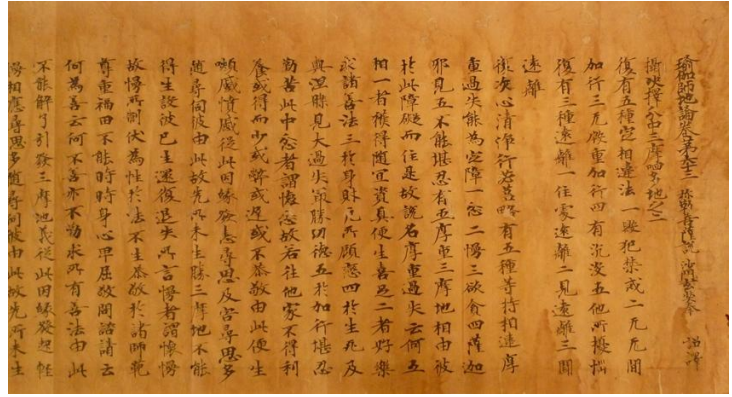 瑜伽師地論卷第六十三 彌勒菩薩說 沙門玄奘奉 詔譯
攝決擇分中三摩呬多地之二
復有五種定相違法一毀犯禁戒二无无間
加行三无殷重加行四有沉沒五他所擾惱
復有三種遠離一住處遠離二見遠離三聞
遠離
復次心清淨行苾芻略有五種等持相違厚
重過失能為定障一忿二慢三欲貪四薩迦
邪見五不能堪忍有五厚重三摩地相由彼
於此障礙而住是故說名厚重過失云何五
相一者獲得隨宜資具便生喜足二者好樂
求諸善法三於身財无所顧戀四於生死及
與涅槃見大過失最勝功德五於加行堪忍
勤苦此中忿者謂懷忿故若往他家不得利
養或得而少或弊或遲或不恭敬由此便生
嚬蹙憤感從此因緣發恚尋思及害尋思多
隨尋伺彼由此故先所未生勝三摩地不能
得生設彼已生還復退失所言慢者謂懷慢
故慢所制伏為性於法不生恭敬於諸師範
尊重福田不能時時身心卑屈敬問諮請云
何為善云何不善亦不勤求所有善法由此
不能解了引發三摩地義從此因緣發起輕
慢相應尋思多隨尋伺彼由此故先所未生